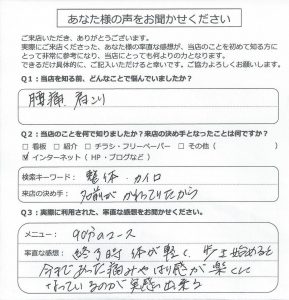 あなた様の声をお聞かせください
ご来店いただき、ありがとうございます。
実際にご来店くださった、あなた様の率直な感想が、当店のことを初めて知る方に
とって非常に参考になり、当店にとっても何よりの力となります。
できるだけ具体的に、ご記入いただけると幸いです。ご協力よろしくお願いします。
Q1：当店を知る前、どんなことで悩んでいましたか？
腰痛 肩こり
Q2：当店のことを何で知りましたか？来店の決め手となったことは何ですか？
□ 看板 □ 紹介 □ チラシ・フリーペーパー □ その他（ ）
☑ インターネット（ HP・ブログなど）
検索キーワード： 整体・カイロ
来店の決め手： 名前がかわっていたから
Q3：実際に利用された、率直な感想をお聞かせください
メニュー： 90分のコース
率直な感想： 終了時 体が軽く、歩き始めると
今まであった痛みやはり感が楽に
なっているのが実感出来る